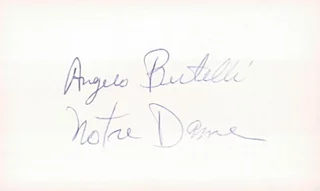 Angelo Bertelli
Notre Dame